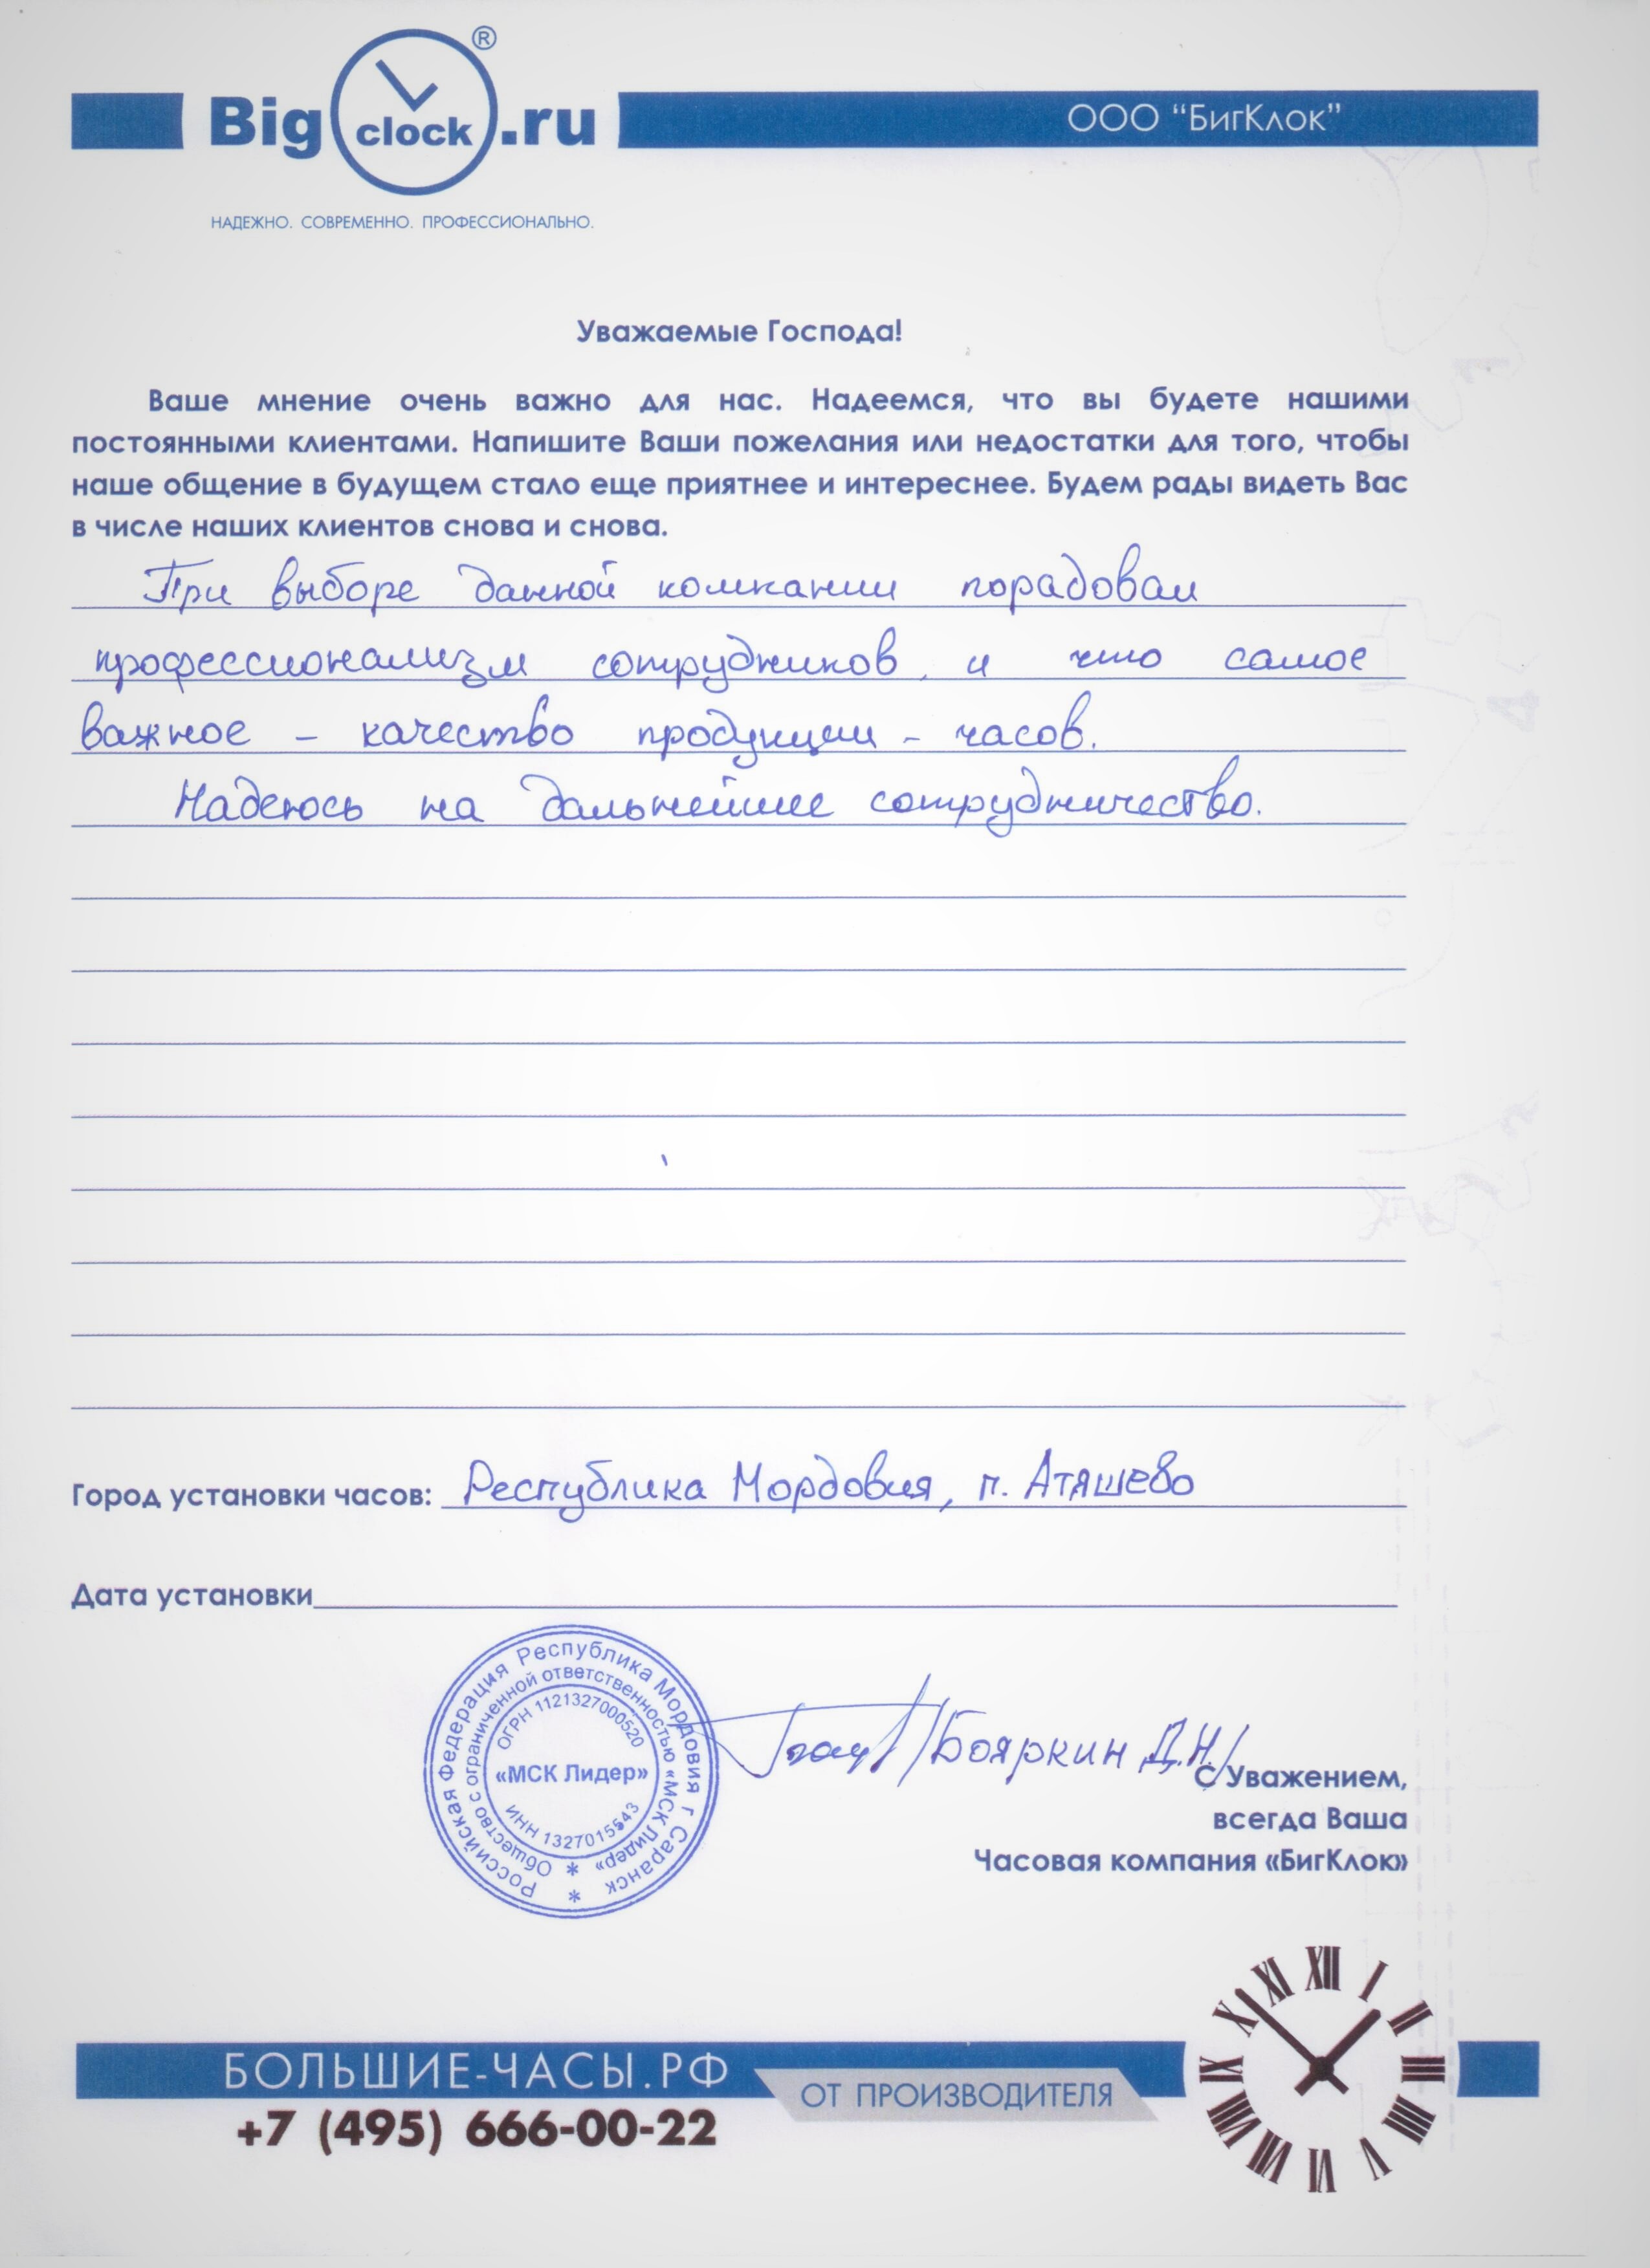 Big clock.ru ®
ООО “БигКлок”
НАДЕЖНО. СОВРЕМЕННО. ПРОФЕССИОНАЛЬНО.
Уважаемые Господа!
Ваше мнение очень важно для нас. Надеемся, что вы будете нашими
постоянными клиентами. Напишите Ваши пожелания или недостатки для того, чтобы
наше общение в будущем стало еще приятнее и интереснее. Будем рады видеть Вас
в числе наших клиентов снова и снова.
При выборе данной компании порадовал
профессионализм сотрудников, и что самое
важное – качество продукции – часов.
Надеюсь на дальнейшее сотрудничество.
Город установки часов: Республика Мордовия, п. Атяшево
Дата установки
Российская Федерация Республика Мордовия г Саранск
Общество с ограниченной ответственностью «МСК Лидер»
ОГРН 1121327000520
«МСК Лидер»
ИНН 1327015543
/Бояркин Д.Н./
С Уважением,
всегда Ваша
Часовая компания «БигКлок»
XII I II III IIII V VI VII VIII IX X XI
БОЛЬШИЕ-ЧАСЫ.РФ
ОТ ПРОИЗВОДИТЕЛЯ
+7 (495) 666-00-22